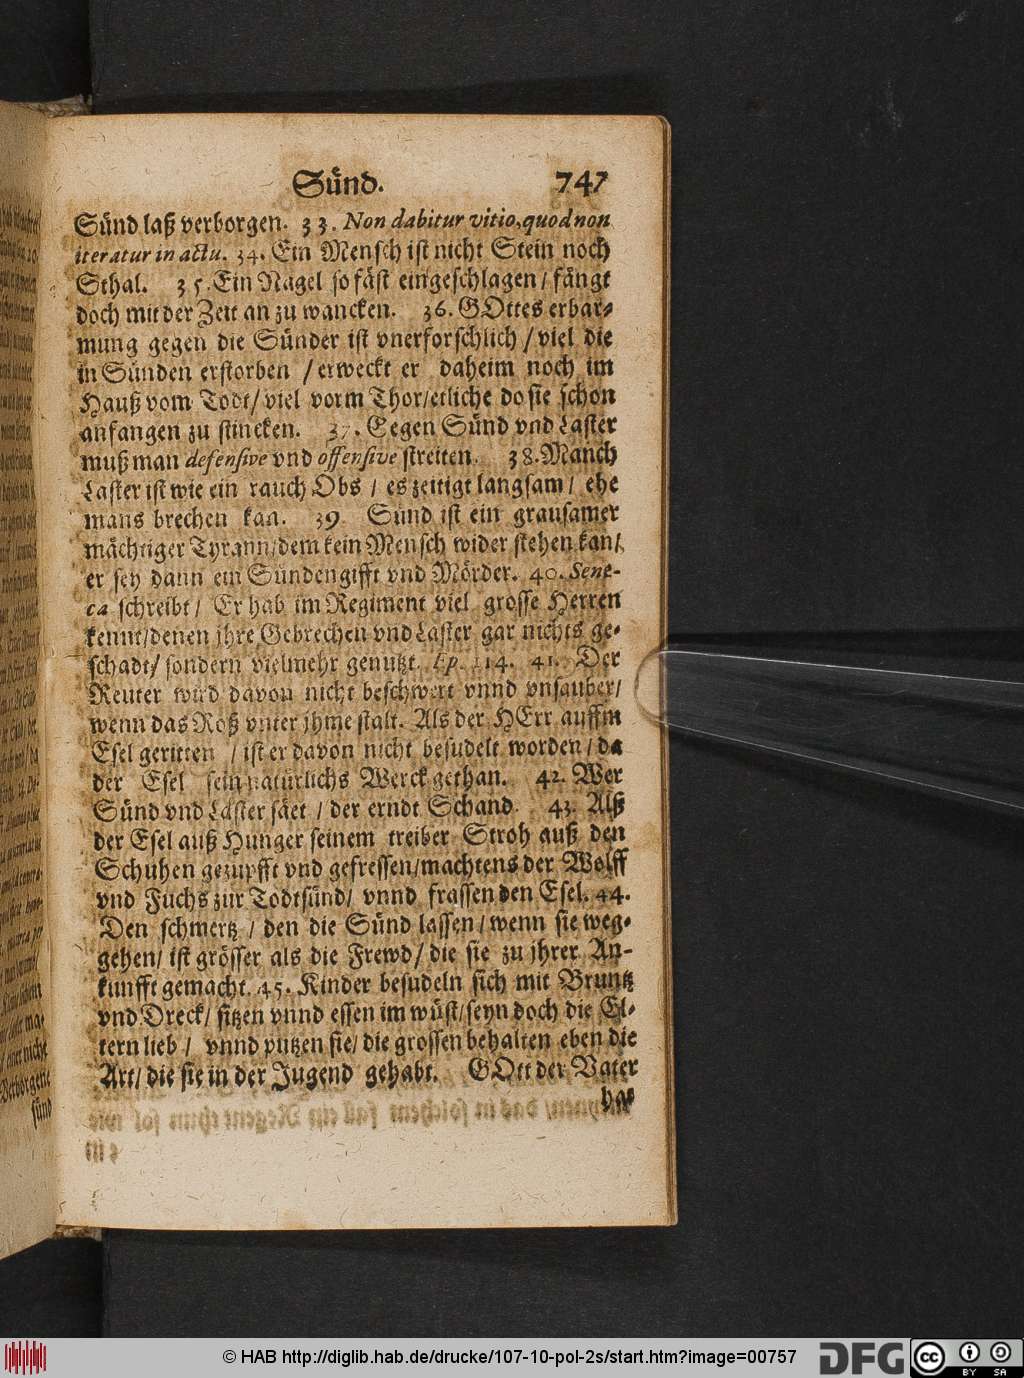 Sünd. 747
Sünd laß verborgen. 33. Non dabitur vitio, quod non
iteratur in actu. 34. Ein Mensch ist nicht Stein noch
Sthal. 35. Ein Nagel so fäst eingeschlagen / fängt
doch mit der Zeit an zu wancken. 36. GOttes erbar-
mung gegen die Sünder ist vnerforschlich / viel die
in Sünden erstorben / erweckt er daheim noch im
Hauß vom Todt / viel vorm Thor / etliche do sie schon
anfangen zu stincken. 37. Gegen Sünd vnd Laster
muß man defensive vnd offensive streiten. 38. Manch
Laster ist wie ein rauch Obs / es zeitigt langsam / ehe
mans brechen kan. 39. Sünd ist ein grausamer
mächtiger Tyrann / dem kein Mensch wider stehen kan /
er sey dann ein Sündengifft vnd Mörder. 40. Sene-
ca schreibt / Er hab im Regiment viel grosse Herren
kennt / denen jhre Gebrechen vnd Laster gar nichts ge-
schadt / sondern vielmehr genutzt. Ep. 114. 41. Der
Reuter wird davon nicht beschwert vnnd vnsauber /
wenn das Roß vnter jhme stalt. Als der HErr auffm
Esel geritten / ist er davon nicht besudelt worden / da
der Esel sein natürlichs Werck gethan. 42. Wer
Sünd vnd Laster säet / der erndt Schand. 43. Alß
der Esel auß Hunger seinem treiber Stroh auß den
Schuhen gezupfft vnd gefressen / machtens der Wolff
vnd Fuchs zur Todtsünd / vnnd frassen den Esel. 44.
Den schmertz / den die Sünd lassen / wenn sie weg-
gehen / ist grösser als die Frewd / die sie zu jhrer An-
kunfft gemacht. 45. Kinder besudeln sich mit Bruntz
vnd Dreck / sitzen vnnd essen im wüst / seyn doch die El-
tern lieb / vnnd putzen sie / die grossen behalten eben die
Art / die sie in der Jugend gehabt. GOtt der Vater
hat
© HAB http://diglib.hab.de/drucke/107-10-pol-2s/start.htm?image=00757
DFG
cc BY SA